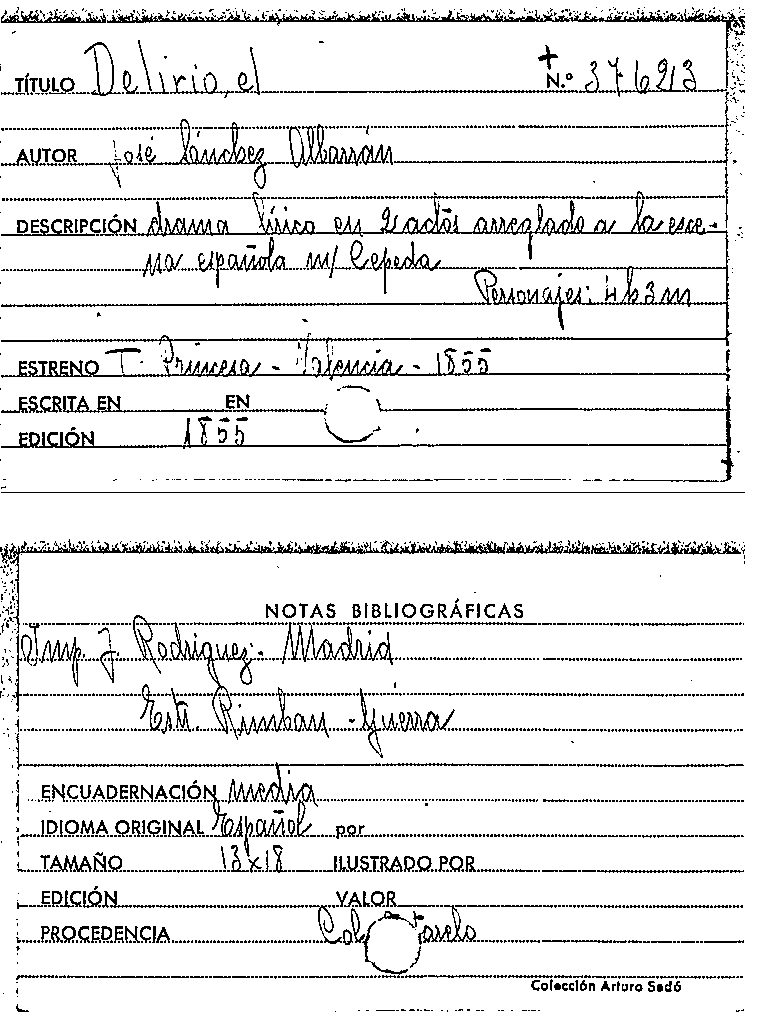 TÍTULO Delirio, el
N.º 37623
AUTOR José Sánchez Albarrán
DESCRIPCIÓN drama lírico en 2 actos arreglado a la esce-
na española m/ Cepeda
Personajes: 4h3m
ESTRENO T. Princesa - Valencia - 1855
ESCRITA EN EN
EDICIÓN 1855
NOTAS BIBLIOGRÁFICAS
Imp. J. Rodriguez. Madrid
Estr. Rimbau - Guerra
ENCUADERNACIÓN media
IDIOMA ORIGINAL Español por
TAMAÑO 13x18 ILUSTRADO POR
EDICIÓN VALOR
PROCEDENCIA
Colección Arturo Sedó